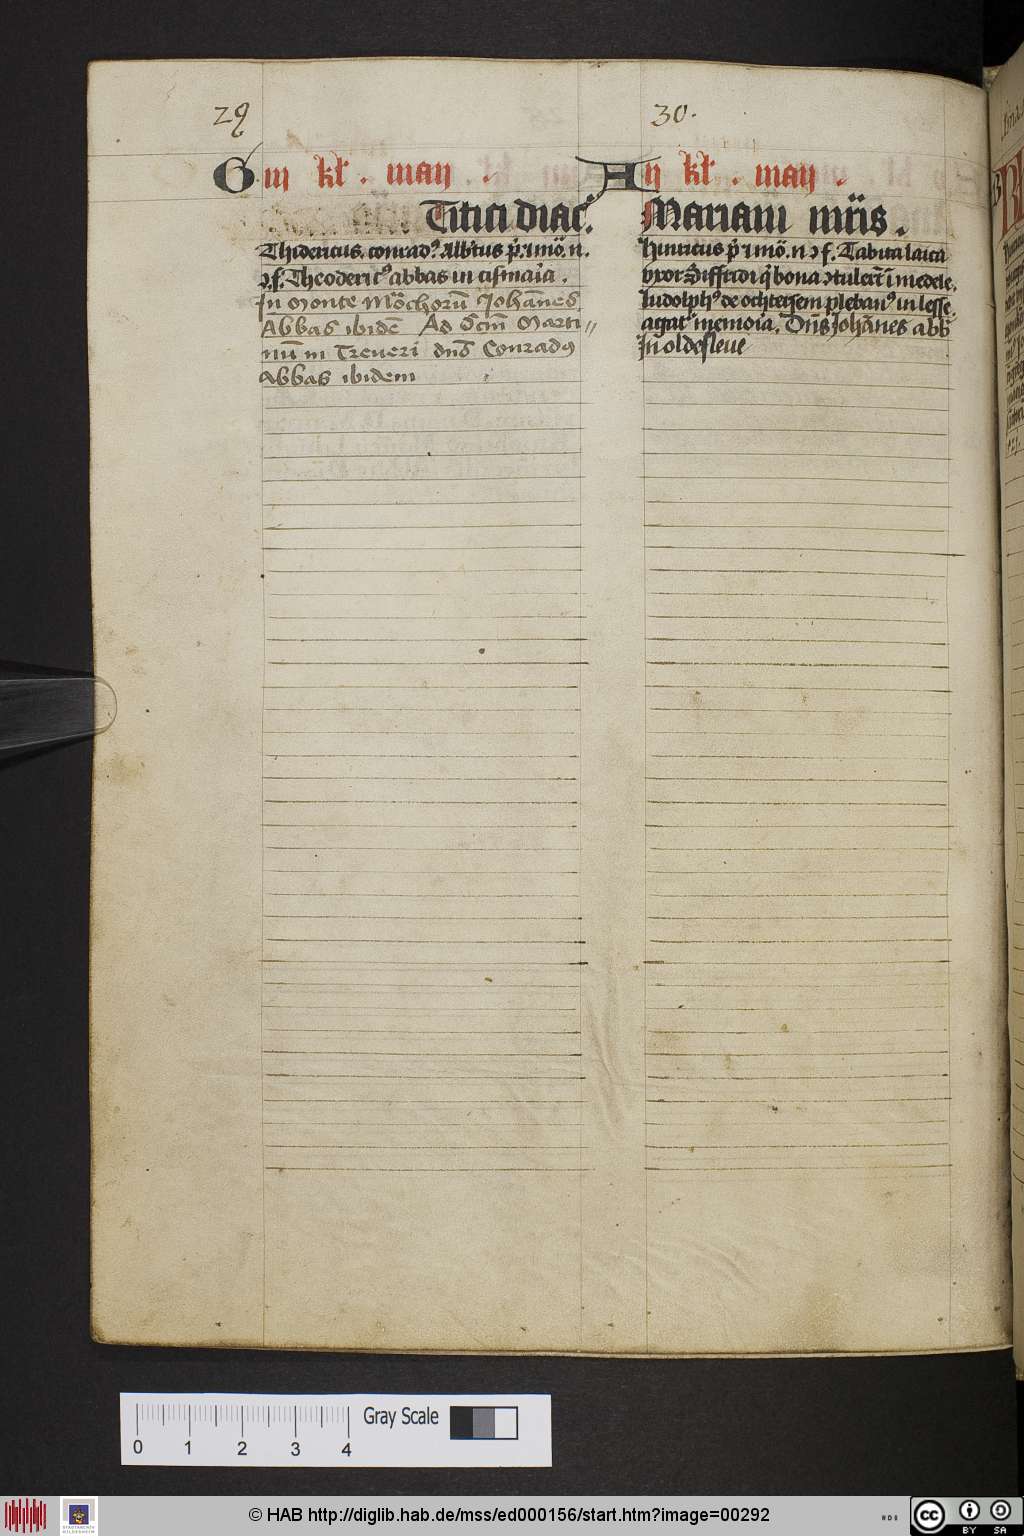 29
G iij kl . maij .
Titici diac̄.
Thidericus. conradꝰ. Alb̄tus p̄r. ⁊ mō. n.
ꝛ f. Theodericꝰ abbas in cismaīa .
In Monte Mōchorū Johānes
Abbas ibidē Ad Sc̄m Marti//
nū in Treueri dn̄s Conradꝰ
Abbas ibidem
30.
A ij kl . maij .
Mariani mr̄is .
Hinricus p̄r ⁊ mō. n ꝛ f. Tabita laica
vxor Siffridi q̄ bona ꝯtuler̄t ī medele.
Ludolphꝰ de ochtersem plebanꝰ in lesse.
agat᷑ memoīa. Dn̄s Johānes abb
In oldesleue
0 1 2 3 4
Gray Scale
© HAB http://diglib.hab.de/mss/ed000156/start.htm?image=00292
cc BY SA